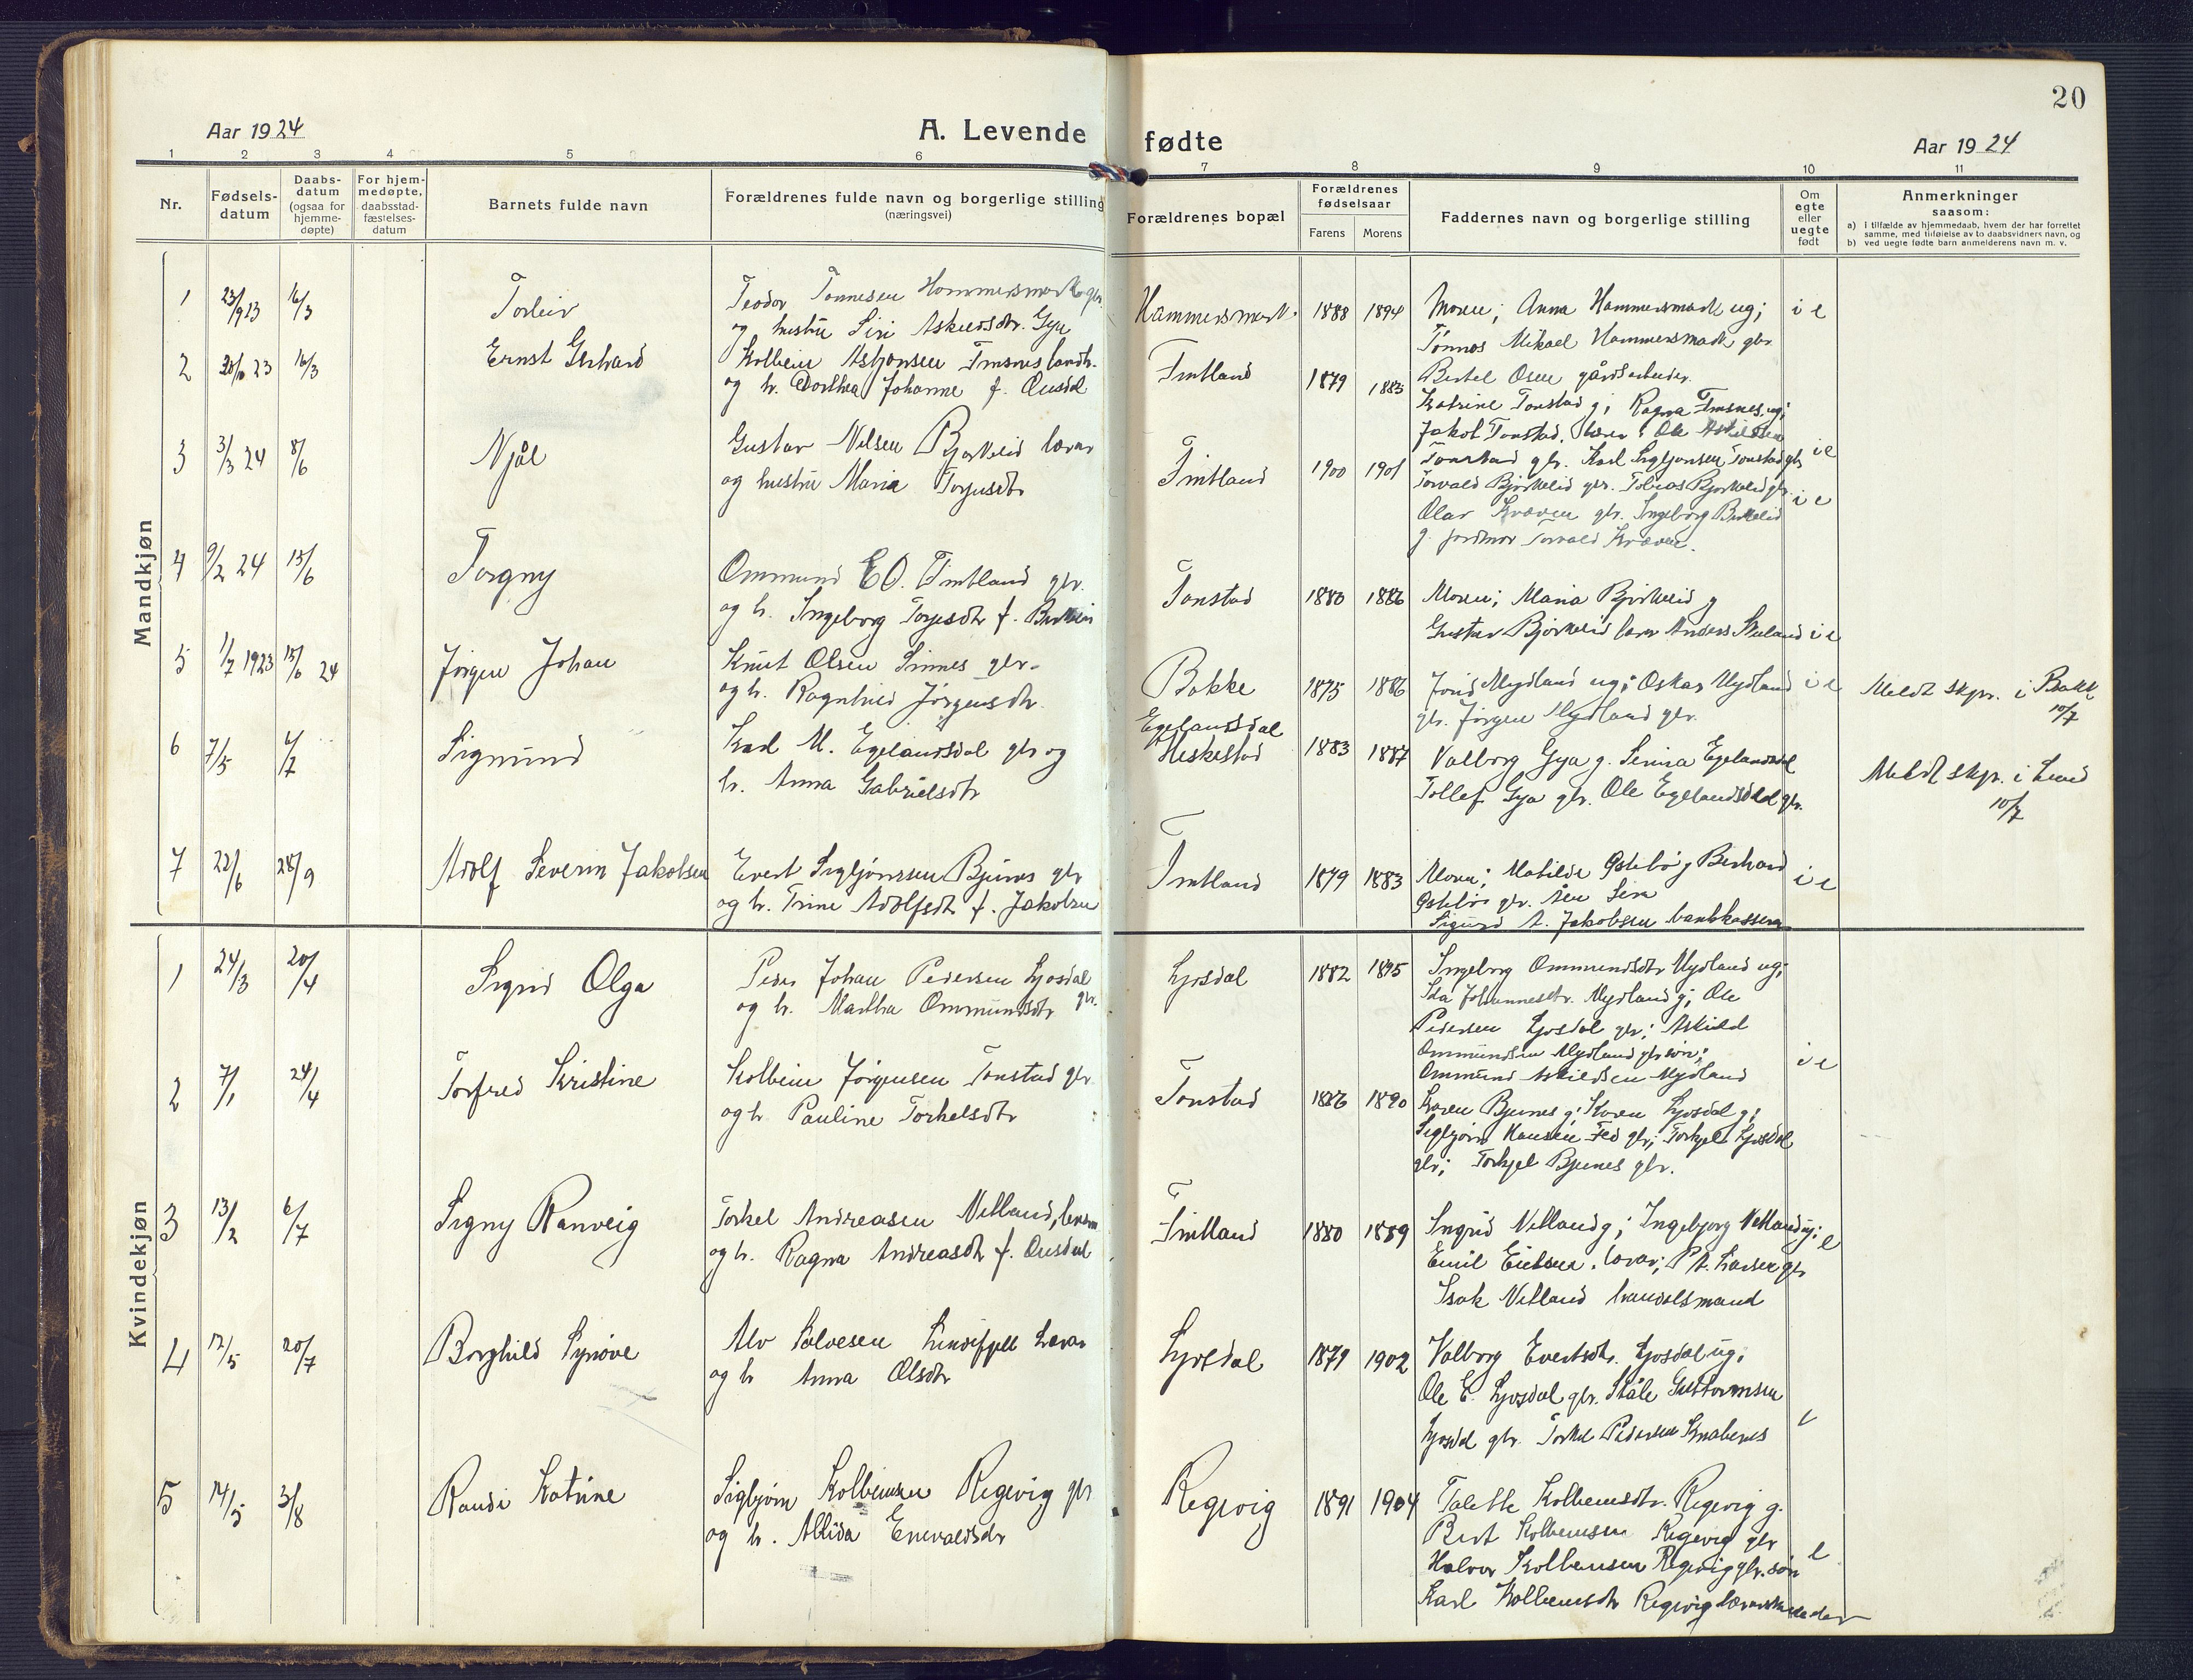 20
Aar 1924
A. Levende fødte
Aar 1924
1 2 3 4 5 6 7 8 9 10 11
Nr.
Fødsels-
datum
Daabs-
datum
(ogsaa for
hjemme-
døpte)
For hjem-
medøpte,
daabsstad-
fæstelses-
datum
Barnets fulde navn
Forældrenes fulde navn og borgerlige stilling
(næringsvei)
Forældrenes bopæl
Forældrenes
fødselsaar
Farens Morens
Faddernes navn og borgerlige stilling
Om
egte
eller
uegte
født
Anmerkninger
saasom:
a) i tilfælde av hjemmedaab, hvem der har forrettet
samme, med tilføielse av to daabsvidners navn, og
b) ved uegte fødte barn anmelderens navn m. v.
Mandkjøn
1 23/9 23 16/3 Torleiv
Teodor Tønnesen Hammersmark gbr.
og hustru Siri Askildsdtr. Gya
Hammersmark 1888 1894
Moren; Anna Hammersmark ug;
Tønnes Mikael Hammersmark gbr.
Bertel Osen gårdsarbeider.
i e
2 16/3 Ernst Gerhard
Kolbein Asbjønsen Fmsnes landh.
og h. Dorthea Johanne f. Ousdal
Fintland 1879 1883
Katrine Tonstad g; Ragna Fmsnes, ug;
Jakob Tonstad, lærer; Ole Askildsen
Tonstad gbr. Karl Sigbjønsen Tonstad gbr
i e
3 3/3 24 8/6 Njål
Gustav Nilsen Bjørkelid lærar
og hustru Maria Torjusdtr
Fintland 1900 1901
Torvald Bjørkelid gbr. Tobias Bjørkelid gbr.
Olav Kvæven gbr. Ingeborg Birkelid
g. jordmor Torvald Kvæven.
i e
4 9/2 24 15/6 Torgny
Ommund E O. Fintland gbr.
og h. Ingeborg Torjesdtr f.
Tonstad 1880 1886
Moren; Maria Bjørkelid g
Gustav Bjørkelid lærer Anders Stuland
i e
5 1/7 1923 15/6 24 Jørgen Johan
Knut Olsen Sinnes gbr.
og h. Ragnhild Jørgensdtr.
Bakke 1875 1886
Mydland ug; Oskar Mydland
gbr. Jørgen Mydland gbr.
i e
Meldt skpr. i Bakke
10/7
6 7/5 4/7 Sigmund
Karl M. Egelandsdal gbr og
h. Anna Gabrielsdtr
Egelandsdal
Heskestad 1883 1887
Valborg Gya g. Senna Egelandsdal
Tollef Gya gbr. Ole Egelandsdal gbr.
Meldt skpr. i Lund
10/7
7 22/6 28/9 Adolf Severin Jakobsen
Evert Sigbjørnsen Bjunes gbr
og h. Trine Adolfsdtr f. Jakobsen
Fintland 1879 1883
Moren; Matilde Østebø g Berhard
Østebø gbr. Åsen Sira
Sigurd A. Jakobsen bankkasserer
i e
Kvindekjøn
1 24/3 20/4 Sigrid Olga
Peder Johan Pedersen Ljosdal
og h. Martha Ommundsdtr gbr.
Ljosdal 1882 1895
Ingeborg Ommundsdtr Mydland ug;
Ida Johannesdtr. Mydland g; Ole
Pedersen Ljosdal gbr; Askild
Ommundsen Mydland gbr søn;
Ommund Askildsen Mydland
i e
2 7/1 24/4 Torfred Kristine
Kolbein Jørgensen Tonstad gbr
og h. Pauline Torkelsdtr
Tonstad 1886 1890
Karen Bjunes g; Karen Ljosdal g;
Sigbjørn Hansen Fed gbr; Torkjel Ljosdal
gbr; Torkjel Bjunes gbr.
3 13/2 6/7 Signy Ranveig
Torkel Andreasen Netland,
og h. Ragna Andreasdtr f. Ousdal
Fintland 1880 1889
Ingrid Netland g; Ingebjorg Netland ug;
Emil Eielsen, lærar; P. A. Larsen gbr
Isak Netland handelsmand
e
4 12/5 20/7 Borghild Synøve
Alv Salvesen Lindefjell Lærar
og h Anna Olsdtr
Ljosdal 1879 1902
Valborg Evertsdtr. Ljosdal ug;
Ole E. Ljosdal gbr. Ståle Guttormsen
Ljosdal gbr. Torkel Pedersen Knabenes
e
5 14/5 3/8 Randi Katrine
Sigbjørn Kolbeinsen Regevig gbr
og h. Allida Enevaldsdtr
Regevig 1891 1904
Talette Kolbeinsdtr. Regevig g.
Bert Kolbeinsen Regevig gbr
Halvor Kolbeinsen Regevig gbr. søn
Karl Kolbeinsdtr Regevig
e